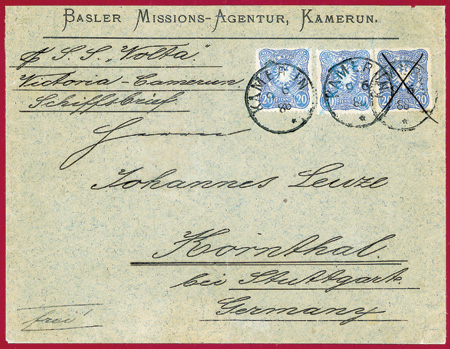 BASLER MISSIONS-AGENTUR, KAMERUN.
p. S. S. "Volta".
Victoria-Camerun
Schiffsbrief
20 20 20
KAMERUN
KAMERUN
6
6
89
Herrn
Johannes Leuze
Kornthal.
bei Stuttgart.
Germany
frei!